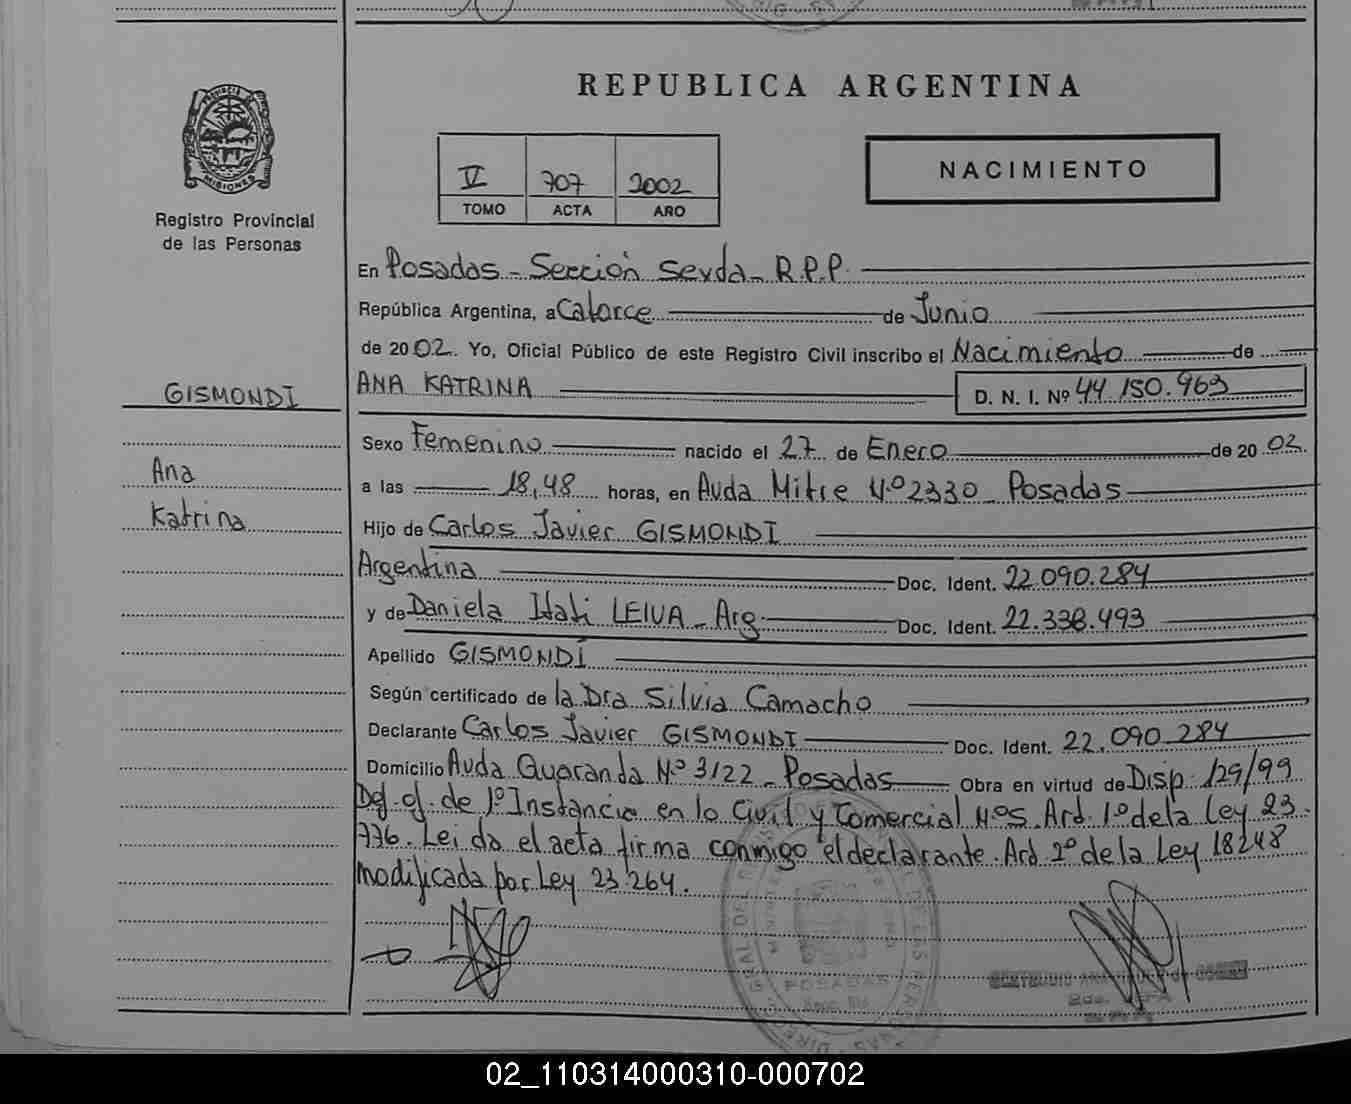 REPUBLICA ARGENTINA
PROVINCIA DE MISIONES
Registro Provincial
de las Personas
V 707 2002
TOMO ACTA AÑO
NACIMIENTO
En Posadas - Sección Sexta - R.P.P.
República Argentina, a Catorce de Junio
de 2002. Yo, Oficial Público de este Registro Civil inscribo el Nacimiento de
GISMONDI
Ana
Katrina
ANA KATRINA D. N. I. Nº 44.150.963
Sexo Femenino nacido el 27 de Enero de 2002
a las 18,48 horas, en Avda Mitre Nº 2330 - Posadas
Hijo de Carlos Javier GISMONDI
Argentina Doc. Ident. 22.090.284
y de Daniela Itati LEIVA - Arg. Doc. Ident. 22.338.493
Apellido GISMONDI
Según certificado de la Dra Silvia Camacho
Declarante Carlos Javier GISMONDI Doc. Ident. 22.090.284
Domicilio Avda Quaranta Nº 3122 - Posadas Obra en virtud de Disp. 129/99
Def. of. de 1º Instancia en lo Civil y Comercial Nº5 Art. 1º de la Ley 23.
776. Leida el acta firma conmigo el declarante. Art. 2º de la Ley 18248
modificada por Ley 23.264.
POSADAS
02_110314000310-000702